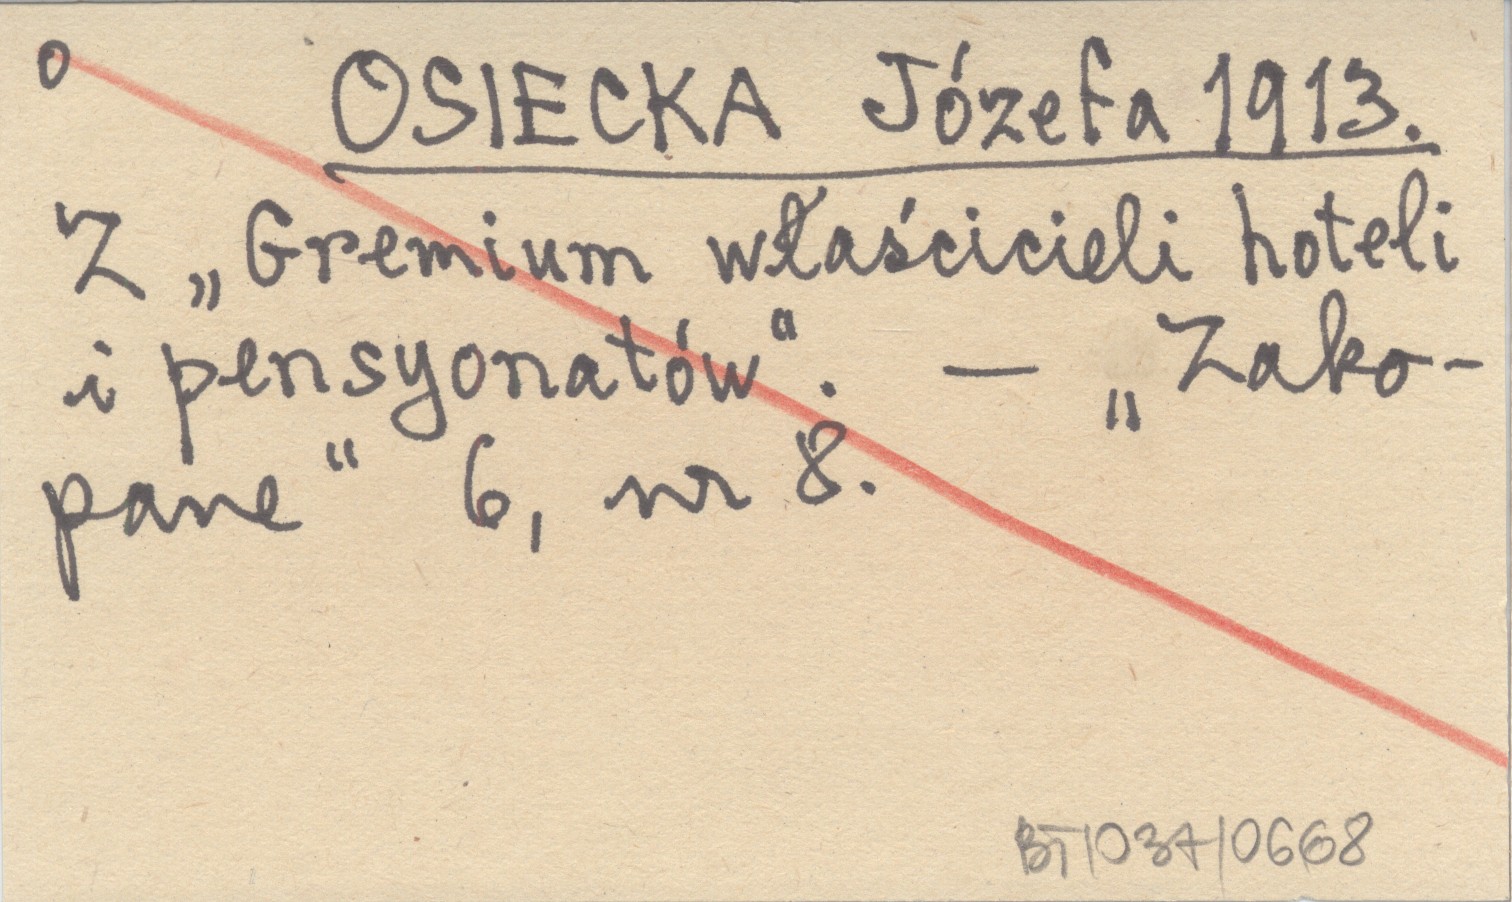 o OSIECKA Józefa 1913.
Z „Gremium właścicieli hoteli
i pensyonatów“. — „Zako-
pane“ 6, nr 8.
BT/037/0668